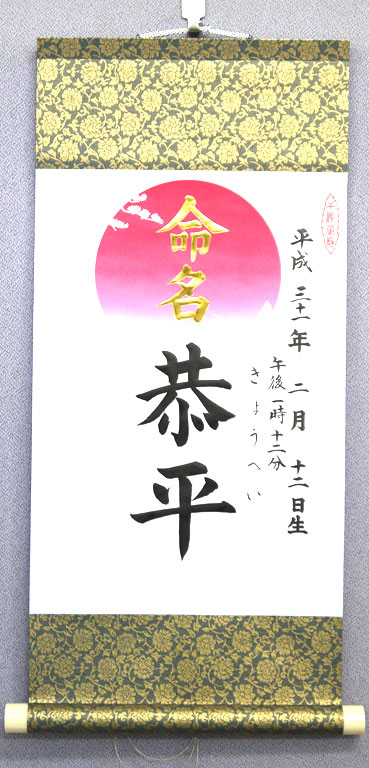 平成三十一年 二月 十二日生
午後一時十二分
きょうへい
命名
恭平